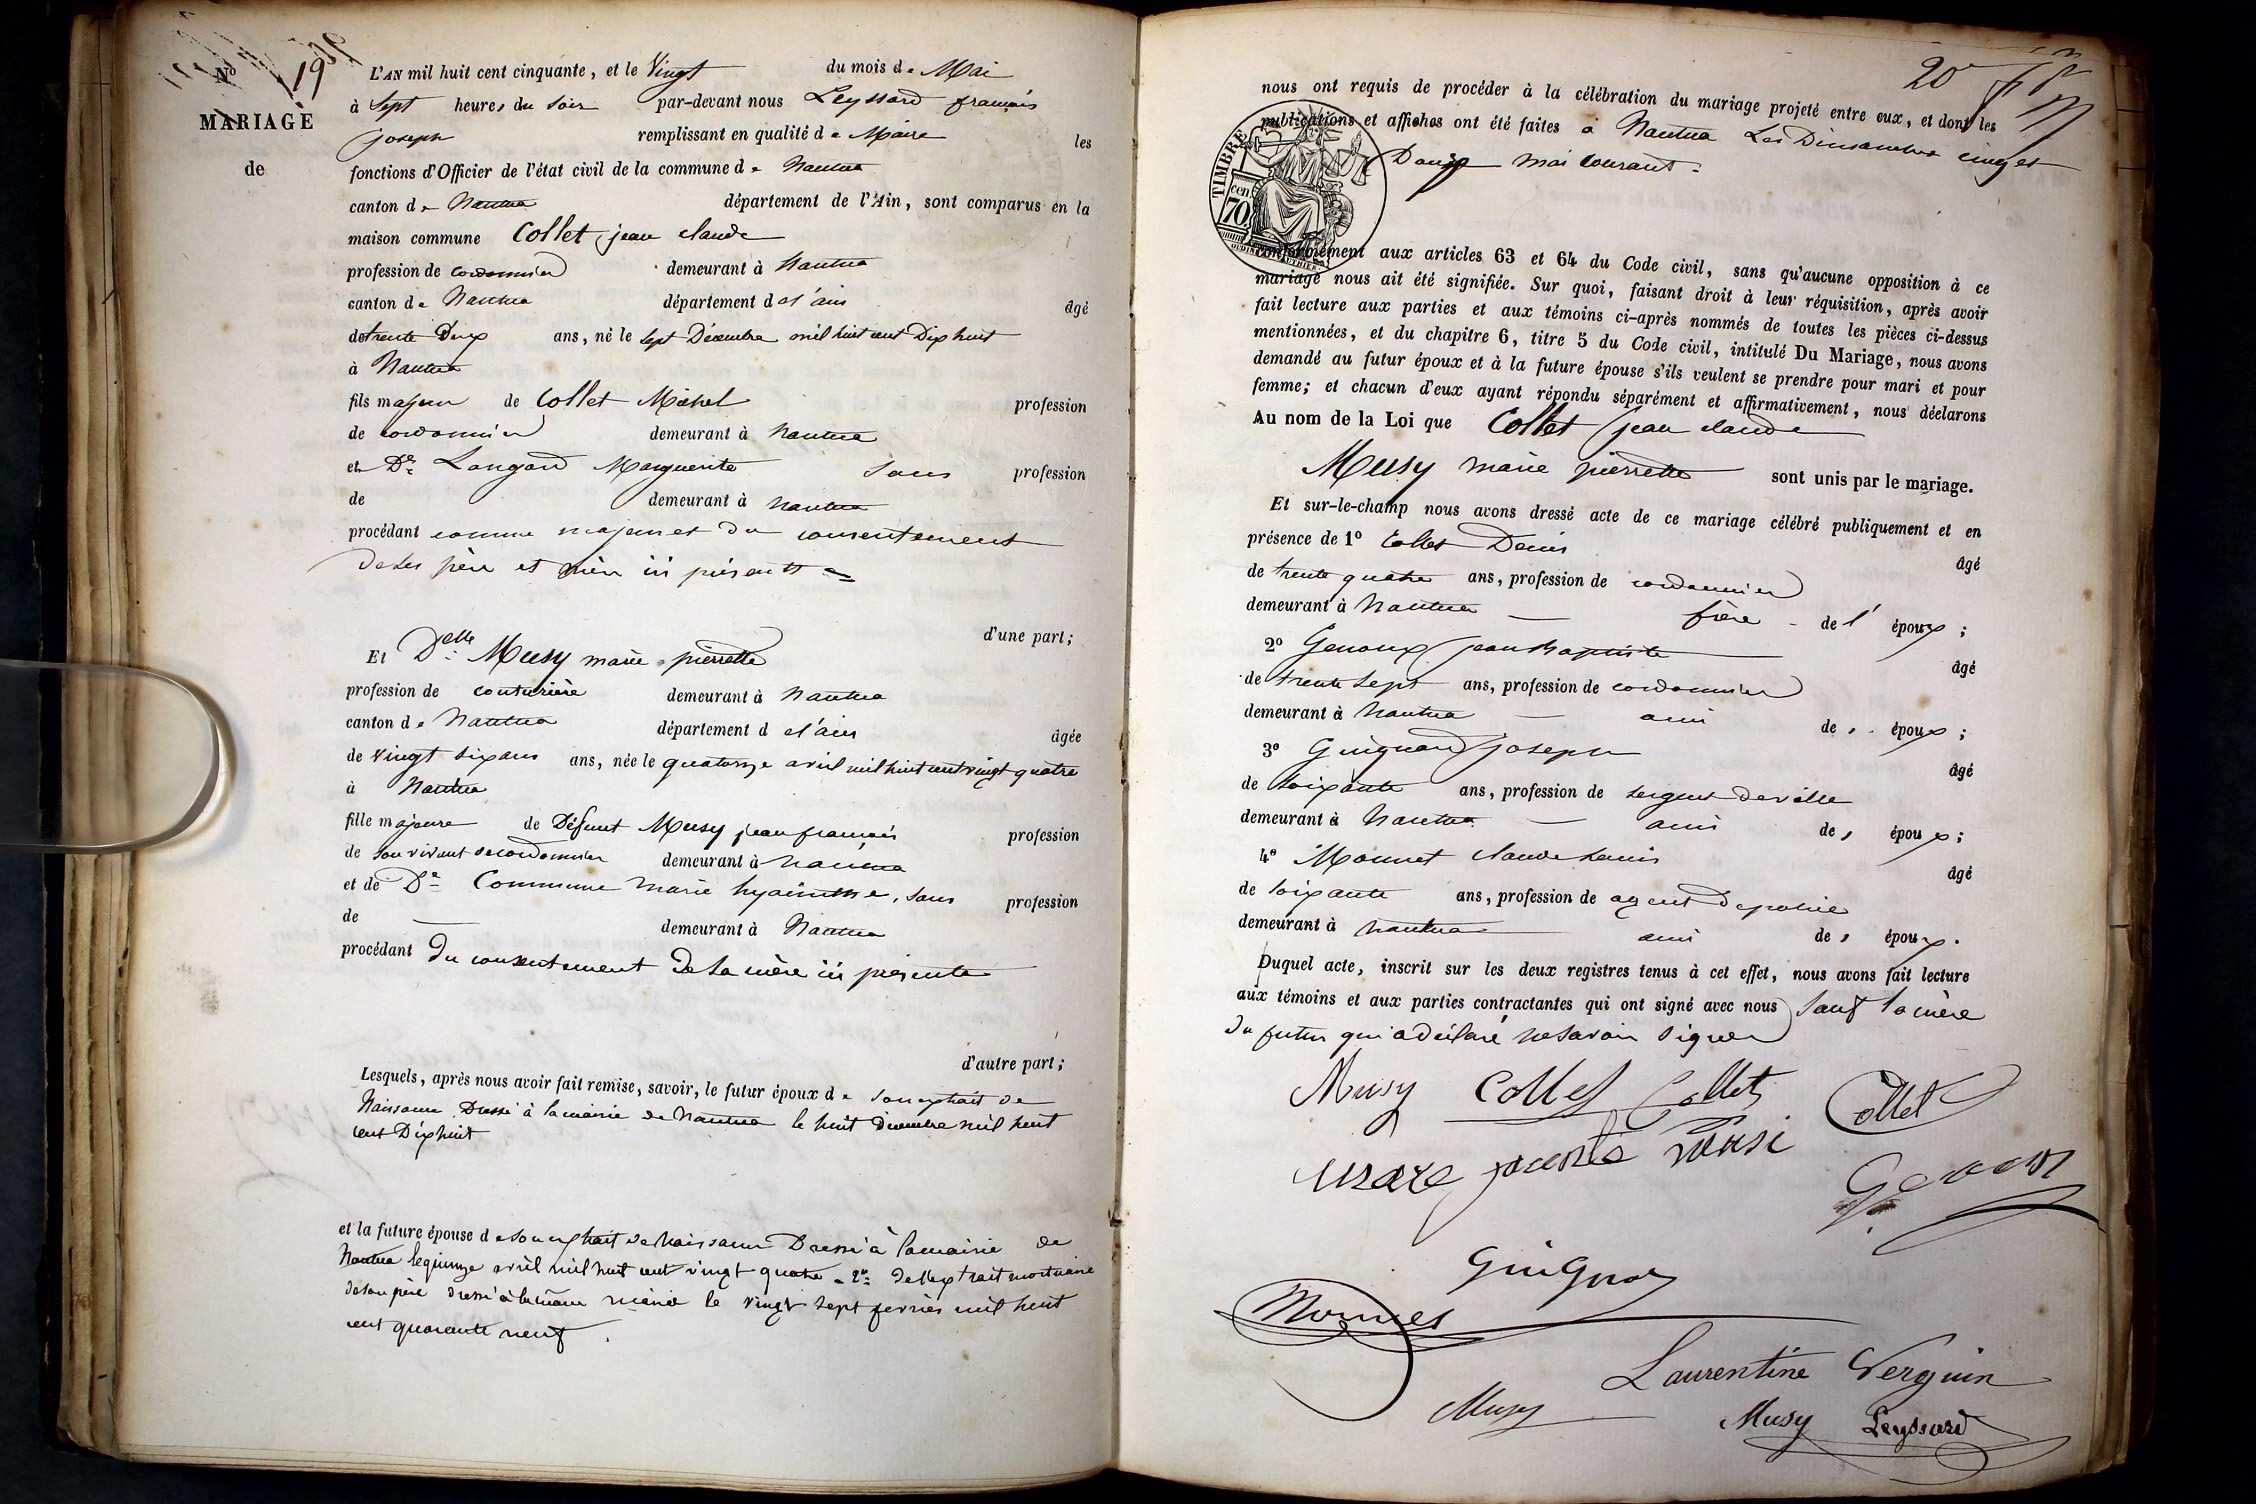 No 19
MARIAGE
de
L'AN mil huit cent cinquante, et le Vingt du mois de Mai
à Sept heures du Soir par-devant nous Leyssard françois
joseph remplissant en qualité de Maire les
fonctions d'Officier de l'état civil de la commune de Nantua
canton de Nantua département de l'Ain, sont comparus en la
maison commune Collet jean claude
profession de cordonnier demeurant à Nantua
canton de Nantua département de l'ain âgé
de trente deux ans, né le sept Décembre mil huit cent Dix huit
à Nantua
fils majeur de Collet Michel profession
de cordonnier demeurant à Nantua
et De Langard Marguerite sans profession
de demeurant à Nantua
procédant comme majeur et du consentement
de ses père et mère ici présents
d'une part;
Et Delle Musy marie pierrette
profession de couturière demeurant à Nantua
canton de Nantua département de l'ain âgée
de vingt six ans ans, née le quatorze avril mil huit cent vingt quatre
à Nantua
fille majeure de Défunt Musy jean françois profession
de son vivant de cordonnier demeurant à Nantua
et de De Commune marie hyacinthe, sans profession
de demeurant à Nantua
procédant du consentement de sa mère ici présente
d'autre part;
Lesquels, après nous avoir fait remise, savoir, le futur époux de son extrait de
Naissance Dressé à la mairie de Nantua le huit décembre mil huit
cent Dix huit
et la future épouse de son extrait de Naissance Dressé à la mairie de
Nantua le quinze avril mil huit cent vingt quatre - 2° de l'extrait mortuaire
de son père dressé à la même mairie le vingt sept février mil huit
cent quarante neuf.
20
nous ont requis de procéder à la célébration du mariage projeté entre eux, et dont les
publications et affiches ont été faites à Nantua Les Dimanches cinq et
Douze mai courant.
TIMBRE
70 cen
conformément aux articles 63 et 64 du Code civil, sans qu'aucune opposition à ce
mariage nous ait été signifiée. Sur quoi, faisant droit à leur réquisition, après avoir
fait lecture aux parties et aux témoins ci-après nommés de toutes les pièces ci-dessus
mentionnées, et du chapitre 6, titre 5 du Code civil, intitulé Du Mariage, nous avons
demandé au futur époux et à la future épouse s'ils veulent se prendre pour mari et pour
femme; et chacun d'eux ayant répondu séparément et affirmativement, nous déclarons
Au nom de la Loi que Collet jean claude
Musy marie pierrette sont unis par le mariage.
Et sur-le-champ nous avons dressé acte de ce mariage célébré publiquement et en
présence de 1° Collet Denis âgé
de trente quatre ans, profession de cordonnier
demeurant à Nantua frère de l'époux;
2° Genoux jean Baptiste âgé
de trente sept ans, profession de cordonnier
demeurant à Nantua ami de, époux;
3° Guignard joseph âgé
de soixante ans, profession de sergent de ville
demeurant à Nantua ami de, époux;
4° Monnet claude Louis âgé
de soixante ans, profession de agent de police
demeurant à Nantua ami de, époux.
Duquel acte, inscrit sur les deux registres tenus à cet effet, nous avons fait lecture
aux témoins et aux parties contractantes qui ont signé avec nous sauf la mère
du futur qui a déclaré ne savoir signer
Musy Collet Collet Collet
Guignar
Laurentine Verguin
Musy Musy Leyssard